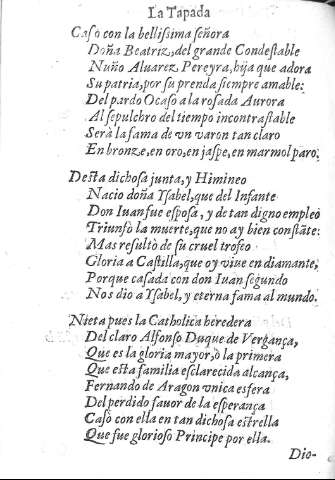 La Tapada
Casò con la bellissima señora
Doña Beatriz, del grande Condestable
Nuño Aluarez Pereyra, hija que adora
Su patria, por su prenda siempre amable:
Del pardo Ocaso a la rosada Aurora
Al sepulchro del tiempo incontrastable
Serà la fama de vn varon tan claro
En bronze, en oro, en jaspe, en marmol paro.
Desta dichosa junta, y Himineo
Nacio doña Ysabel, que del Infante
Don Iuan fue esposa, y de tan digno empleo
Triunfò la muerte, que no ay bien constãte:
Mas resultò de su cruel trofeo
Gloria a Castilla, que oy viue en diamante,
Porque casada con don Iuan segundo
Nos dio a Ysabel, y eterna fama al mundo.
Nieta pues la Catholica heredera
Del claro Alfonso Duque de Vergança,
Que es la gloria mayor, ò la primera
Que esta familia esclarecida alcança,
Fernando de Aragon vnica esfera
Del perdido fauor de la esperança
Casò con ella en tan dichosa estrella
Que fue glorioso Principe por ella.
Dio-